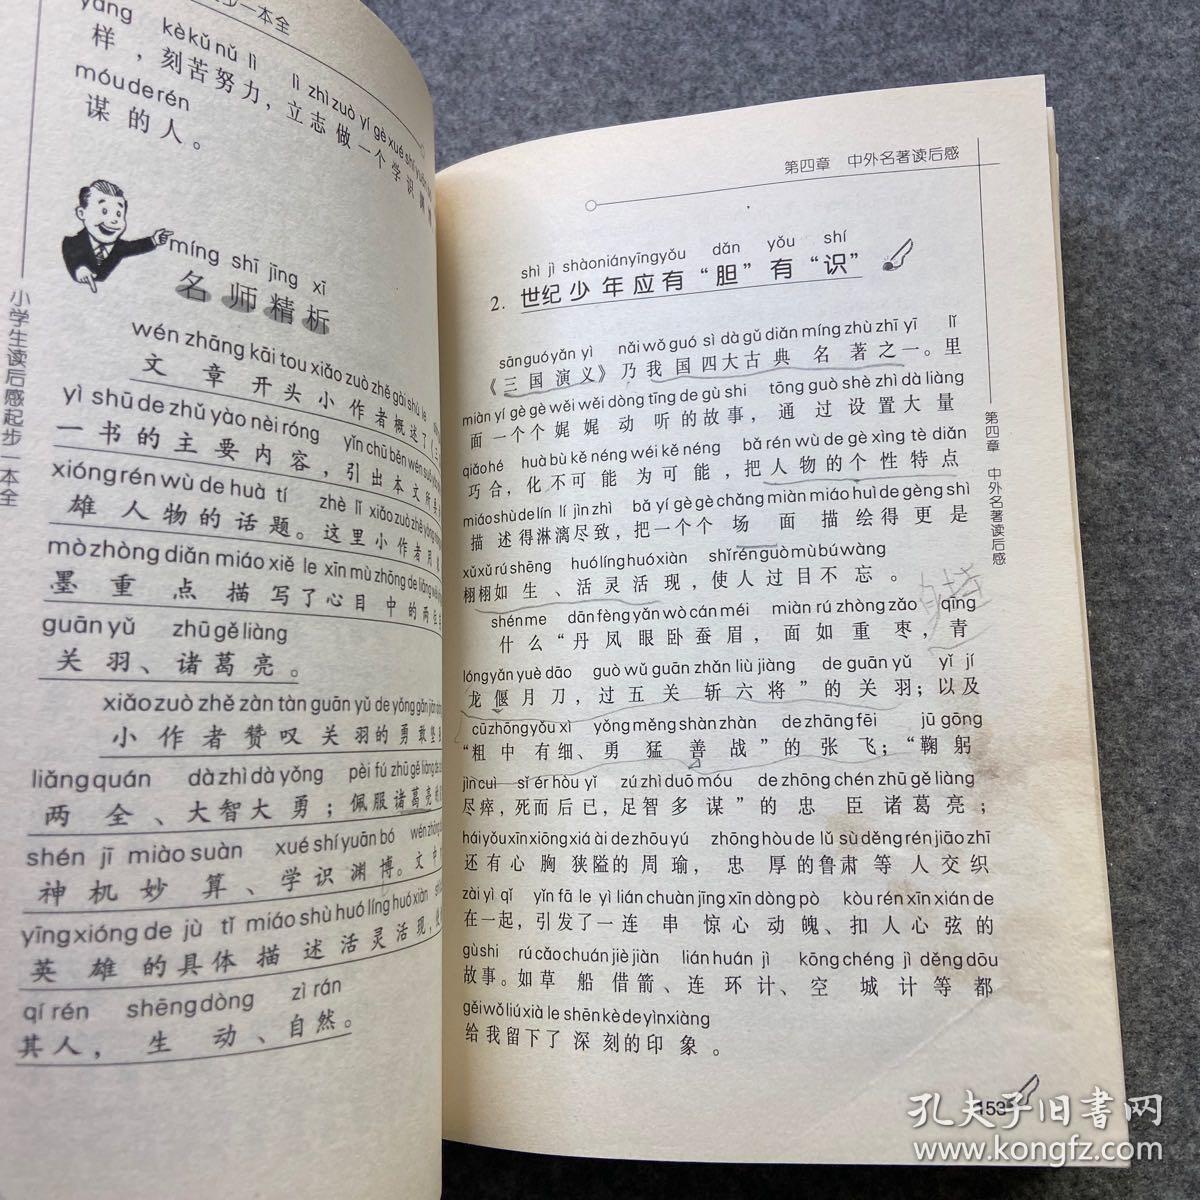 少一本全
yàng kèkǔnǔ lì lì zhìzuò yí gè xué shí yuān
样，刻苦努力，立志做一个学识渊
móuderén
谋的人。
míng shī jīng xī
名师精析
wén zhāng kāi tou xiǎo zuò zhě gài shù le
文章开头小作者概述了《三
yì shū de zhǔ yào nèi róng yǐn chū běn wén suǒ
一书的主要内容，引出本文所
xióng rén wù de huà tí zhè lǐ xiǎo zuò zhě yòng
雄人物的话题。这里小作者用
mò zhòng diǎn miáo xiě le xīn mù zhōng de liǎng
墨重点描写了心目中的两位
guān yǔ zhū gě liàng
关羽、诸葛亮。
xiǎo zuò zhě zàn tàn guān yǔ de yǒng gǎn jiān
小作者赞叹关羽的勇敢坚
liǎng quán dà zhì dà yǒng pèi fú zhū gě liàng de
两全、大智大勇；佩服诸葛亮的
shén jī miào suàn xué shí yuān bó wén zhōng
神机妙算、学识渊博。文中
yīng xióng de jù tǐ miáo shù huó líng huó xiàn
英雄的具体描述活灵活现，
qí rén shēng dòng zì rán
其人，生动、自然。
小学生读后感起步一本全
第四章 中外名著读后感
shì jì shàoniányīngyǒu dǎn yǒu shí
2. 世纪少年应有“胆”有“识”
sānguóyǎn yì nǎi wǒ guó sì dà gǔ diǎn míng zhù zhī yī lǐ
《三国演义》乃我国四大古典名著之一。里
miàn yí gè gè wěi wěi dòng tīng de gù shi tōng guò shè zhì dà liàng
面一个个娓娓动听的故事，通过设置大量
qiǎo hé huà bù kě néng wéi kě néng bǎ rén wù de gè xìng tè diǎn
巧合，化不可能为可能，把人物的个性特点
miáo shù de lín lí jìn zhì bǎ yí gè gè chǎng miàn miáo huì de gèng shì
描述得淋漓尽致，把一个个场面描绘得更是
xǔ xǔ rú shēng huó líng huó xiàn shǐ rén guò mù bú wàng
栩栩如生、活灵活现，使人过目不忘。
shén me dān fèng yǎn wò cán méi miàn rú zhòng zǎo qīng
什么“丹凤眼卧蚕眉，面如重枣，青
lóng yǎn yuè dāo guò wǔ guān zhǎn liù jiàng de guān yǔ yǐ jí
龙偃月刀，过五关斩六将”的关羽；以及
cū zhōng yǒu xì yǒng měng shàn zhàn de zhāng fēi jū gōng
“粗中有细、勇猛善战”的张飞；“鞠躬
jìn cuì sǐ ér hòu yǐ zú zhì duō móu de zhōng chén zhū gě liàng
尽瘁，死而后已，足智多谋”的忠臣诸葛亮；
hái yǒu xīn xiōng xiá ài de zhōu yú zhōng hòu de lǔ sù děng rén jiāo zhī
还有心胸狭隘的周瑜，忠厚的鲁肃等人交织
zài yì qǐ yǐn fā le yì lián chuàn jīng xīn dòng pò kòu rén xīn xián de
在一起，引发了一连串惊心动魄、扣人心弦的
gù shi rú cǎo chuán jiè jiàn lián huán jì kōng chéng jì děng dōu
故事。如草船借箭、连环计、空城计等都
gěi wǒ liú xià le shēn kè de yìn xiàng
给我留下了深刻的印象。
第四章 中外名著读后感
153
孔夫子旧书网
www.kongfz.com